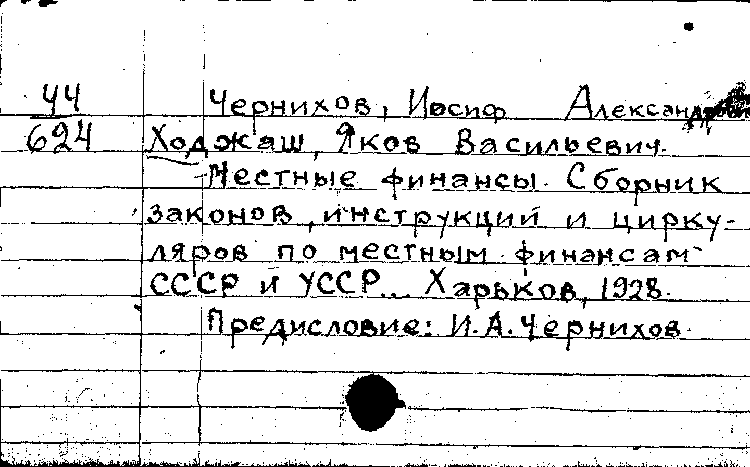 44 Чернихов, Иосиф Александрович
624 Ходжаш, Яков Васильевич.
Местные финансы. Сборник
законов, инструкций и цирку-
ляров по местным финансам
СССР и УССР. Харьков, 1928.
Предисловие: И.А. Чернихов.